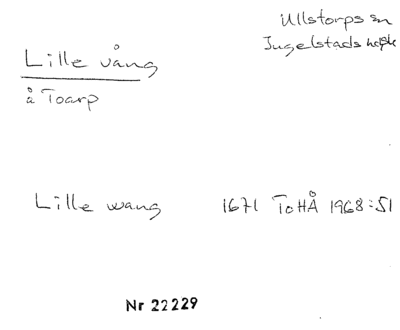 Ullstorps sn
Ingelstads hd
Lille vång
å Toarp
Lille wang 1671 ToHÅ 1968:51
Nr 22229